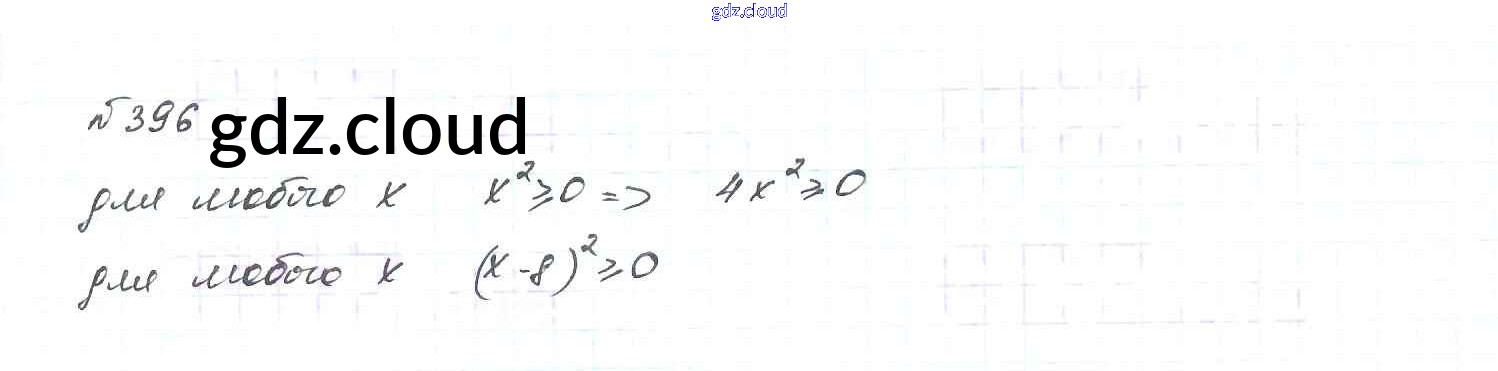 gdz.cloud
№396 gdz.cloud
для любого x x² ⩾ 0 => 4x² ⩾ 0
для любого x (x-8)² ⩾ 0